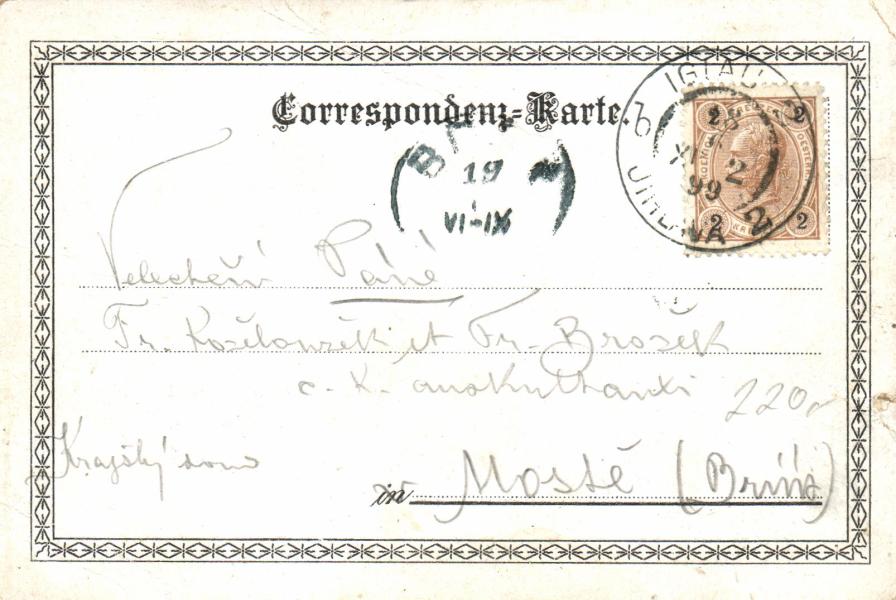 Correspondenz-Karte.
IGLAU
b
28
XI
2
99
JIHLAVA
2 2
2 2
19
VI-IX
Páně
Fr. et Fr. Brošek
c. K. auskultanti
220,-
Krajský soud
in Mostě (Brüx)